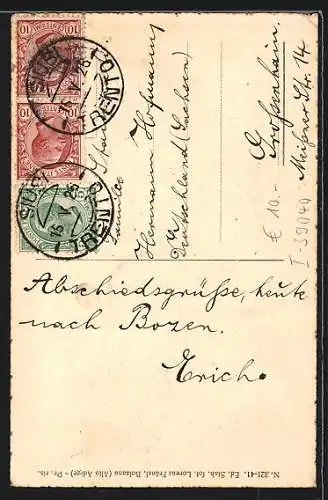 Abschiedsgrüße, heute
nach Bozen.
Erich.
Familie
Hermann Hofmann
Deutschland (Sachsen)
Großenhain
Meißner Str. 14
€ 10.-
I-39040
SIUSI
TRENTO
SIUSI
TRENTO
10
10
N. 321-41. Ed. Stab. fot. Lorenz Fränzl, Bolzano (Alto Adige) - Pr. ris.